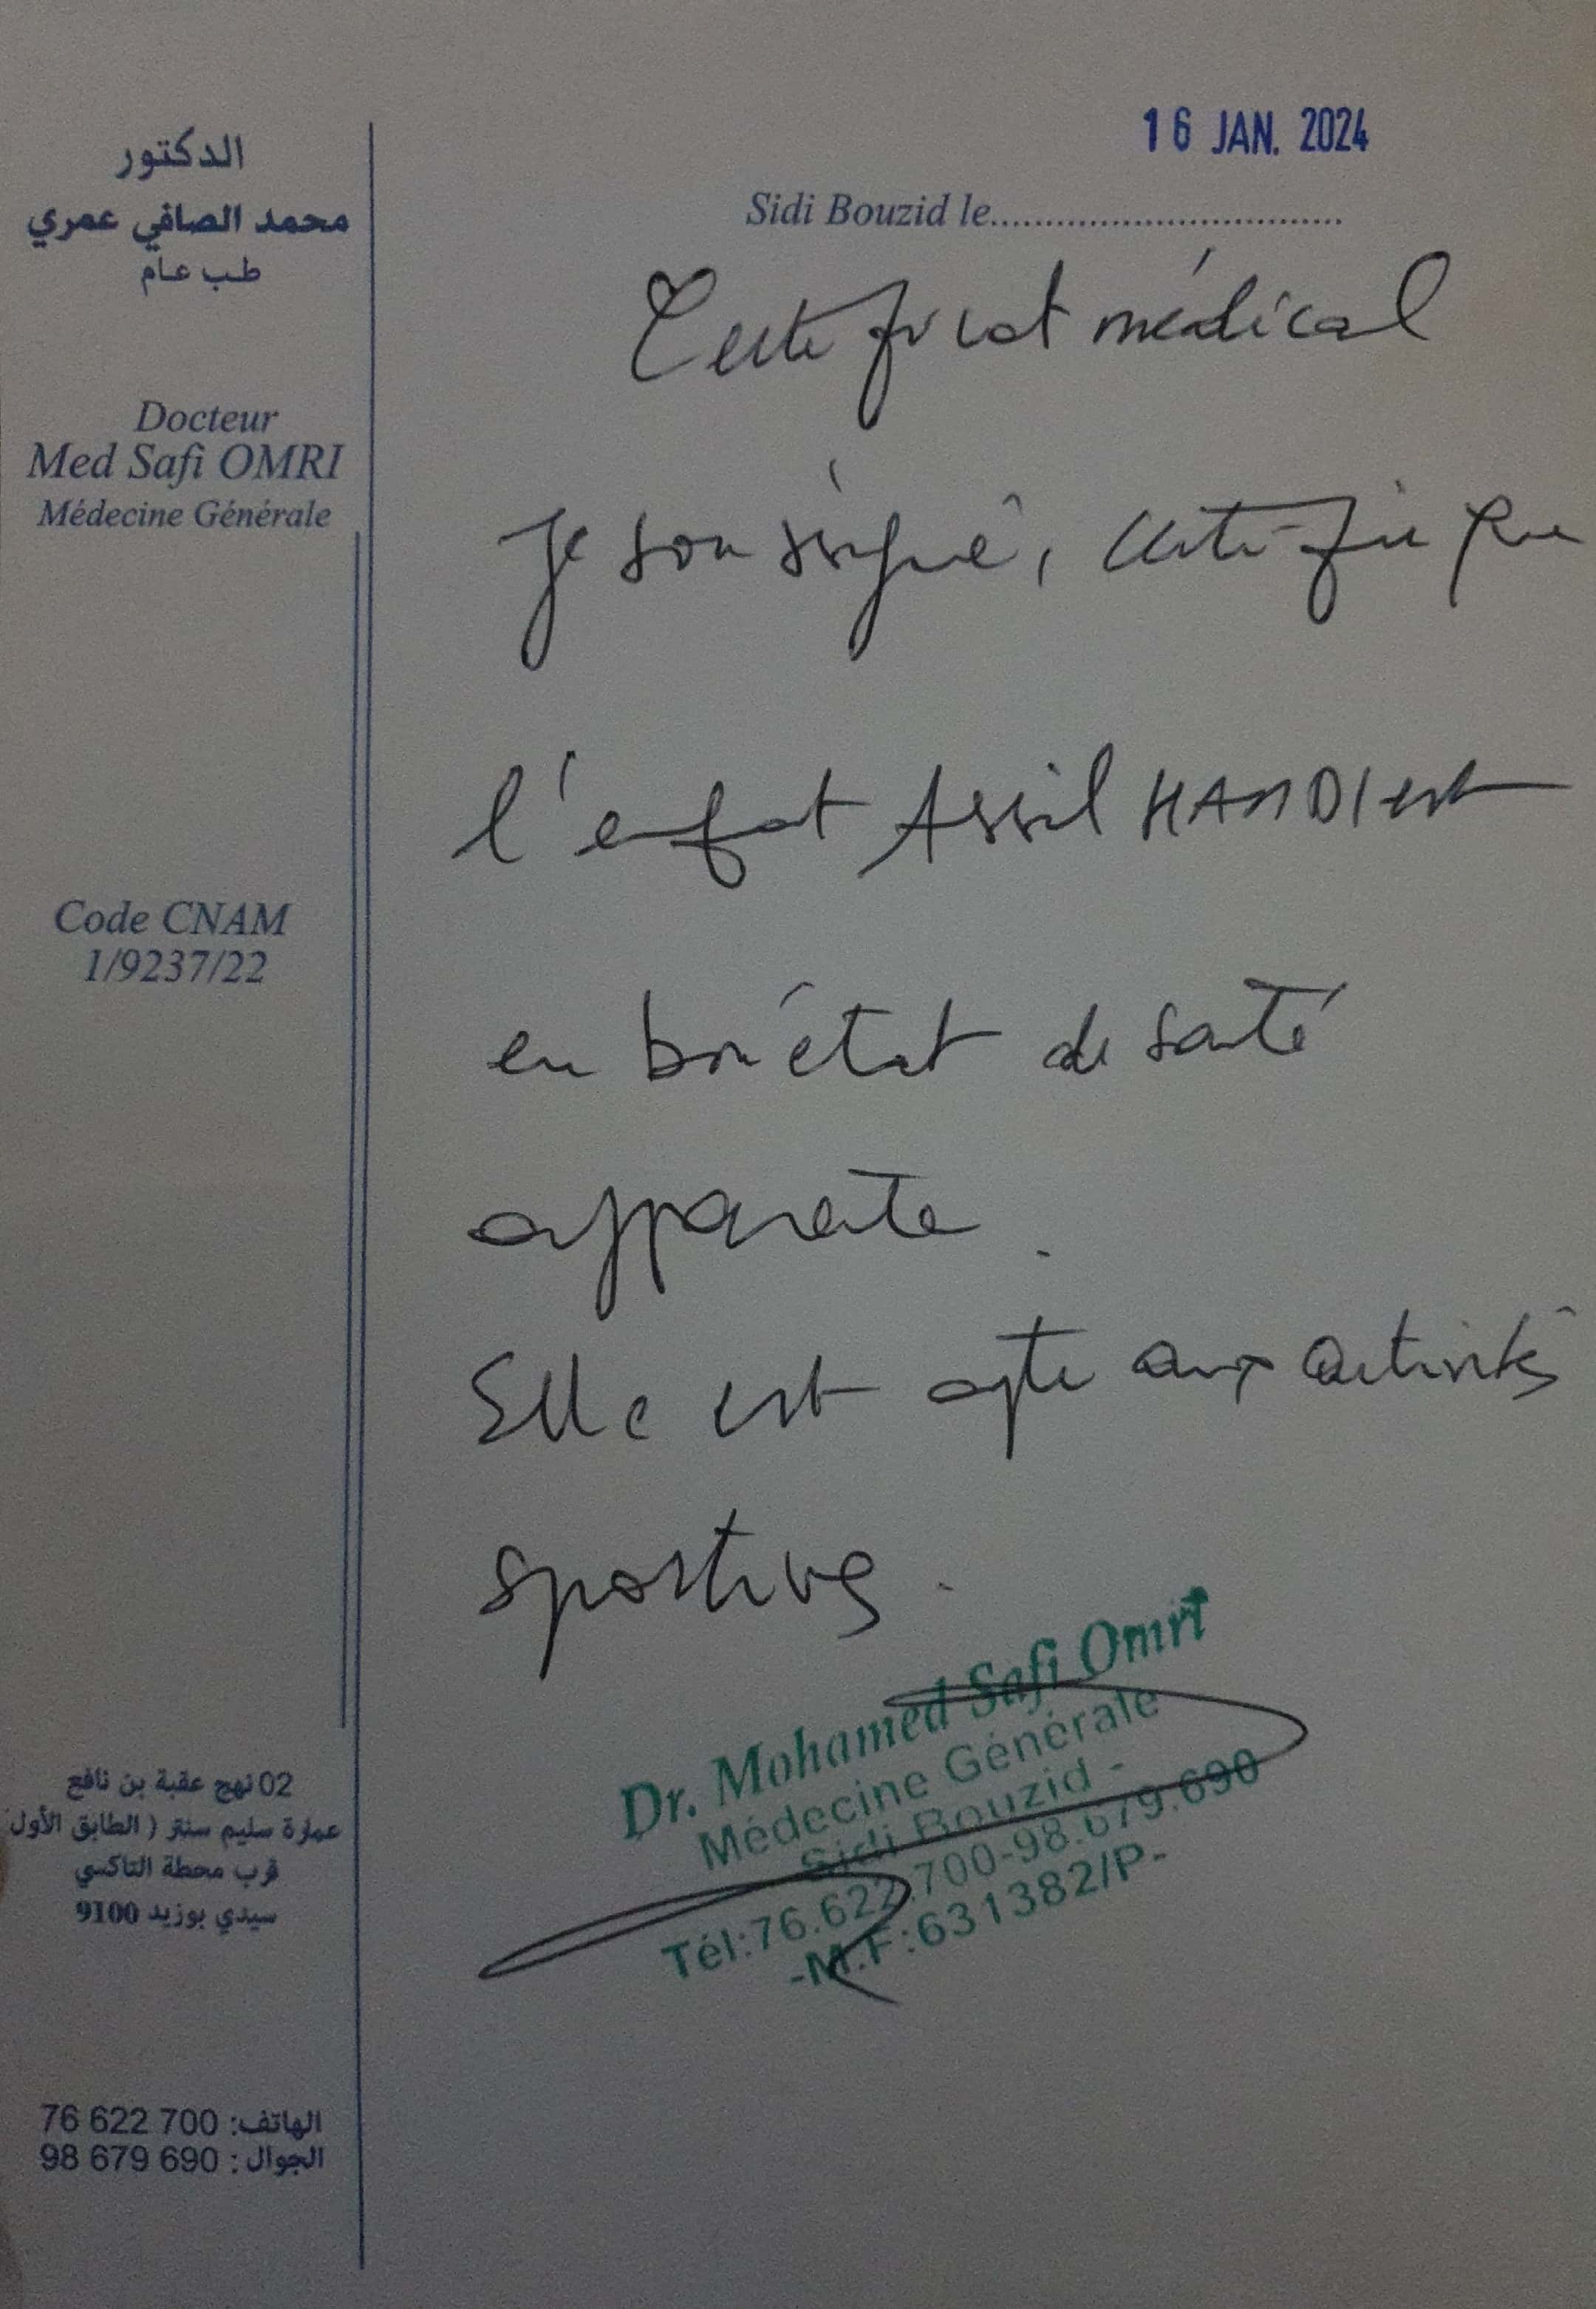 الدكتور
محمد الصافي عمري
طب عام
Docteur
Med Safi OMRI
Médecine Générale
Code CNAM
1/9237/22
02 نهج عقبة بن نافع
عمارة سليم سنتر ( الطابق الأول
قرب محطة التاكسي
سيدي بوزيد 9100
الهاتف: 76 622 700
الجوال : 98 679 690
16 JAN. 2024
Sidi Bouzid le...............................
Certificat médical
Je soussigné, certifie que
l'enfat Assil HAMDI est
en bon état de santé
apparente.
Elle est apte aux activités
sportives.
Dr. Mohamed Safi Omri
Médecine Générale
Sidi Bouzid -
Tél:76.622.700-98.679.690
-M.F:631382/P-